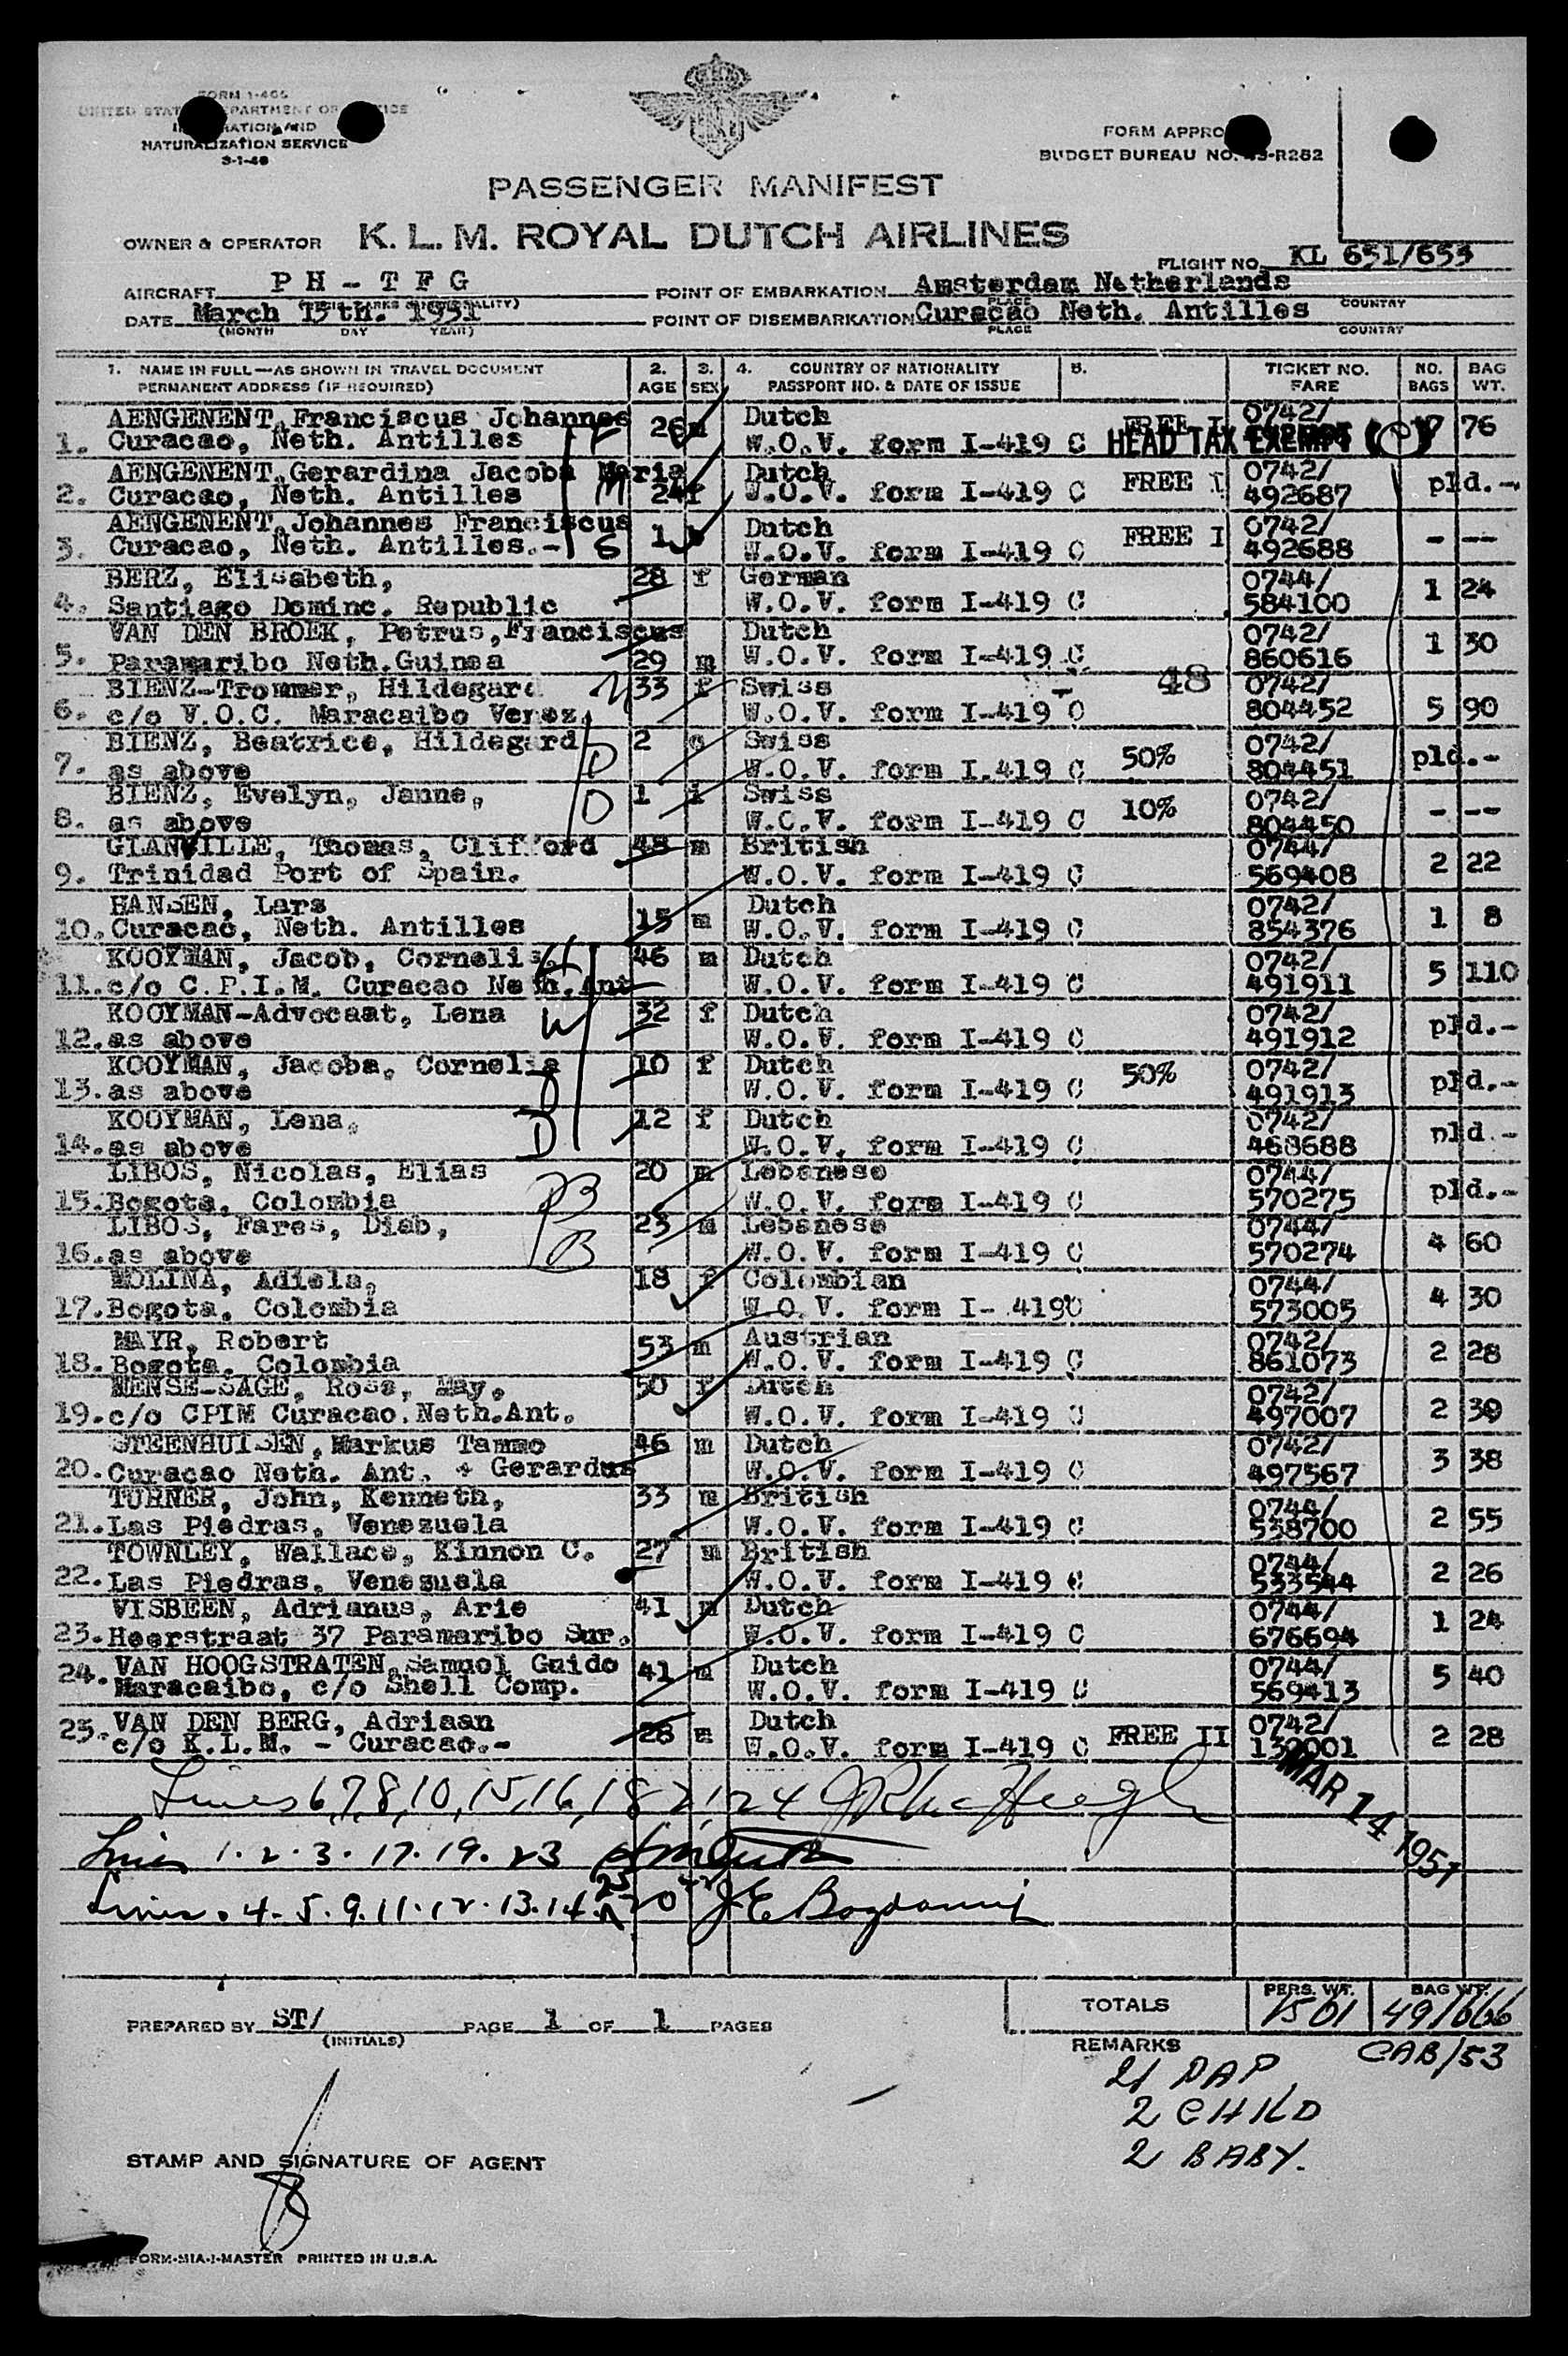 FORM I-466
UNITED STATES DEPARTMENT OF JUSTICE
IMMIGRATION AND
NATURALIZATION SERVICE
3-1-48
FORM APPRO
BUDGET BUREAU NO. 43-R282
PASSENGER MANIFEST
OWNER & OPERATOR K. L. M. ROYAL DUTCH AIRLINES
FLIGHT NO. KL 651/653
AIRCRAFT PH-TFG POINT OF EMBARKATION Amsterdam Netherlands
PLACE COUNTRY
DATE March 13th. 1951 POINT OF DISEMBARKATION Curacao Neth. Antilles
(MONTH DAY YEAR) PLACE COUNTRY
1. NAME IN FULL—AS SHOWN IN TRAVEL DOCUMENT 2. 3. 4. COUNTRY OF NATIONALITY 5. TICKET NO. NO. BAG
PERMANENT ADDRESS (IF REQUIRED) AGE SEX PASSPORT NO. & DATE OF ISSUE FARE BAGS WT.
AENGENENT, Franciscus Johannes 26 m Dutch FREE I 0742/
1. Curacao, Neth. Antilles W.O.V. form I-419 C HEAD TAX EXEMPT 7 76
AENGENENT, Gerardina Jacoba Maria Dutch 0742/
2. Curacao, Neth. Antilles M 24 f W.O.V. form I-419 C FREE I 492687 pld.-
AENGENENT, Johannes Franciscus Dutch 0742/
3. Curacao, Neth. Antilles.- S 1 W.O.V. form I-419 C FREE I 492688 - --
BERZ, Elisabeth, 28 f German 0744/
4. Santiago Dominc. Republic W.O.V. form I-419 C 584100 1 24
VAN DEN BROEK, Petrus, Franciscus Dutch 0742/
5. Paramaribo Neth.Guinea 29 m W.O.V. form I-419 C 860616 1 30
BIENZ-Trommer, Hildegard 33 f Swiss 48 0742/
6. c/o V.O.C. Maracaibo Venez. W.O.V. form I-419 C 804452 5 90
BIENZ, Beatrice, Hildegard 2 Swiss 0742/
7. as above D W.O.V. form I.419 C 50% 804451 pld.-
BIENZ, Evelyn, Janne, 1 Swiss 0742/
8. as above D W.O.V. form I-419 C 10% 804450 - --
GLANVILLE, Thomas, Clifford 48 m British 0744/
9. Trinidad Port of Spain. W.O.V. form I-419 C 569408 2 22
HANSEN, Lars Dutch 0742/
10. Curacao, Neth. Antilles 15 m W.O.V. form I-419 C 854376 1 8
KOOYMAN, Jacob, Cornelis H 46 m Dutch 0742/
11. c/o C.P.I.M. Curacao Neth.Ant W.O.V. form I-419 C 491911 5 110
KOOYMAN-Advocaat, Lena W 32 f Dutch 0742/
12. as above W.O.V. form I-419 C 491912 pld.-
KOOYMAN, Jacoba, Cornelia 10 f Dutch 0742/
13. as above D W.O.V. form I-419 C 50% 491913 pld.-
KOOYMAN, Lena, 12 f Dutch 0742/
14. as above D W.O.V. form I-419 C 468688 pld.-
LIBOS, Nicolas, Elias 20 m Lebanese 0744/
15. Bogota, Colombia B W.O.V. form I-419 C 570275 pld.-
LIBOS, Fares, Diab, 23 m Lebanese 0744/
16. as above B W.O.V. form I-419 C 570274 4 60
MOLINA, Adiela, 18 f Colombian 0744/
17. Bogota, Colombia W.O.V. form I- 419C 573005 4 30
MAYR, Robert 53 m Austrian 0742/
18. Bogota, Colombia W.O.V. form I-419 C 861073 2 28
MENSE-SAGE, Rosa, May, 50 f Dutch 0742/
19. c/o CPIM Curacao.Neth.Ant. W.O.V. form I-419 C 497007 2 30
STEENHUISEN, Markus Tammo 46 m Dutch 0742/
20. Curacao Neth. Ant. + Gerardus W.O.V. form I-419 C 497567 3 38
TURNER, John, Kenneth, 33 m British 0744/
21. Las Piedras, Venezuela W.O.V. form I-419 C 538700 2 55
TOWNLEY, Wallace, Kinnon C. 27 m British 0744/
22. Las Piedras, Venezuela W.O.V. form I-419 C 533544 2 26
VISBEEN, Adrianus, Arie 41 m Dutch 0744/
23. Heerstraat 37 Paramaribo Sur. W.O.V. form I-419 C 676694 1 24
24. VAN HOOGSTRATEN, Samuel Guido 41 m Dutch 0744/
Maracaibo, c/o Shell Comp. W.O.V. form I-419 C 569413 5 40
25. VAN DEN BERG, Adriaan 28 m Dutch 0742/
c/o K.L.M. - Curacao.- W.O.V. form I-419 C FREE II 130001 2 28
Lines 6,7,8,10,15,16,18,21,24
MAR 14 1951
Lines 1.2.3.17.19.23
Lines. 4-5.9.11.12.13.14. 25 20 22 J E Bogdanny
TOTALS PERS. WT. 1501 BAG WT. 49/666
PREPARED BY ST/ PAGE 1 OF 1 PAGES
(INITIALS)
REMARKS CAB/53
21 PAP
2 CHILD
2 BABY.
STAMP AND SIGNATURE OF AGENT
FORM-MIA-I-MASTER PRINTED IN U.S.A.